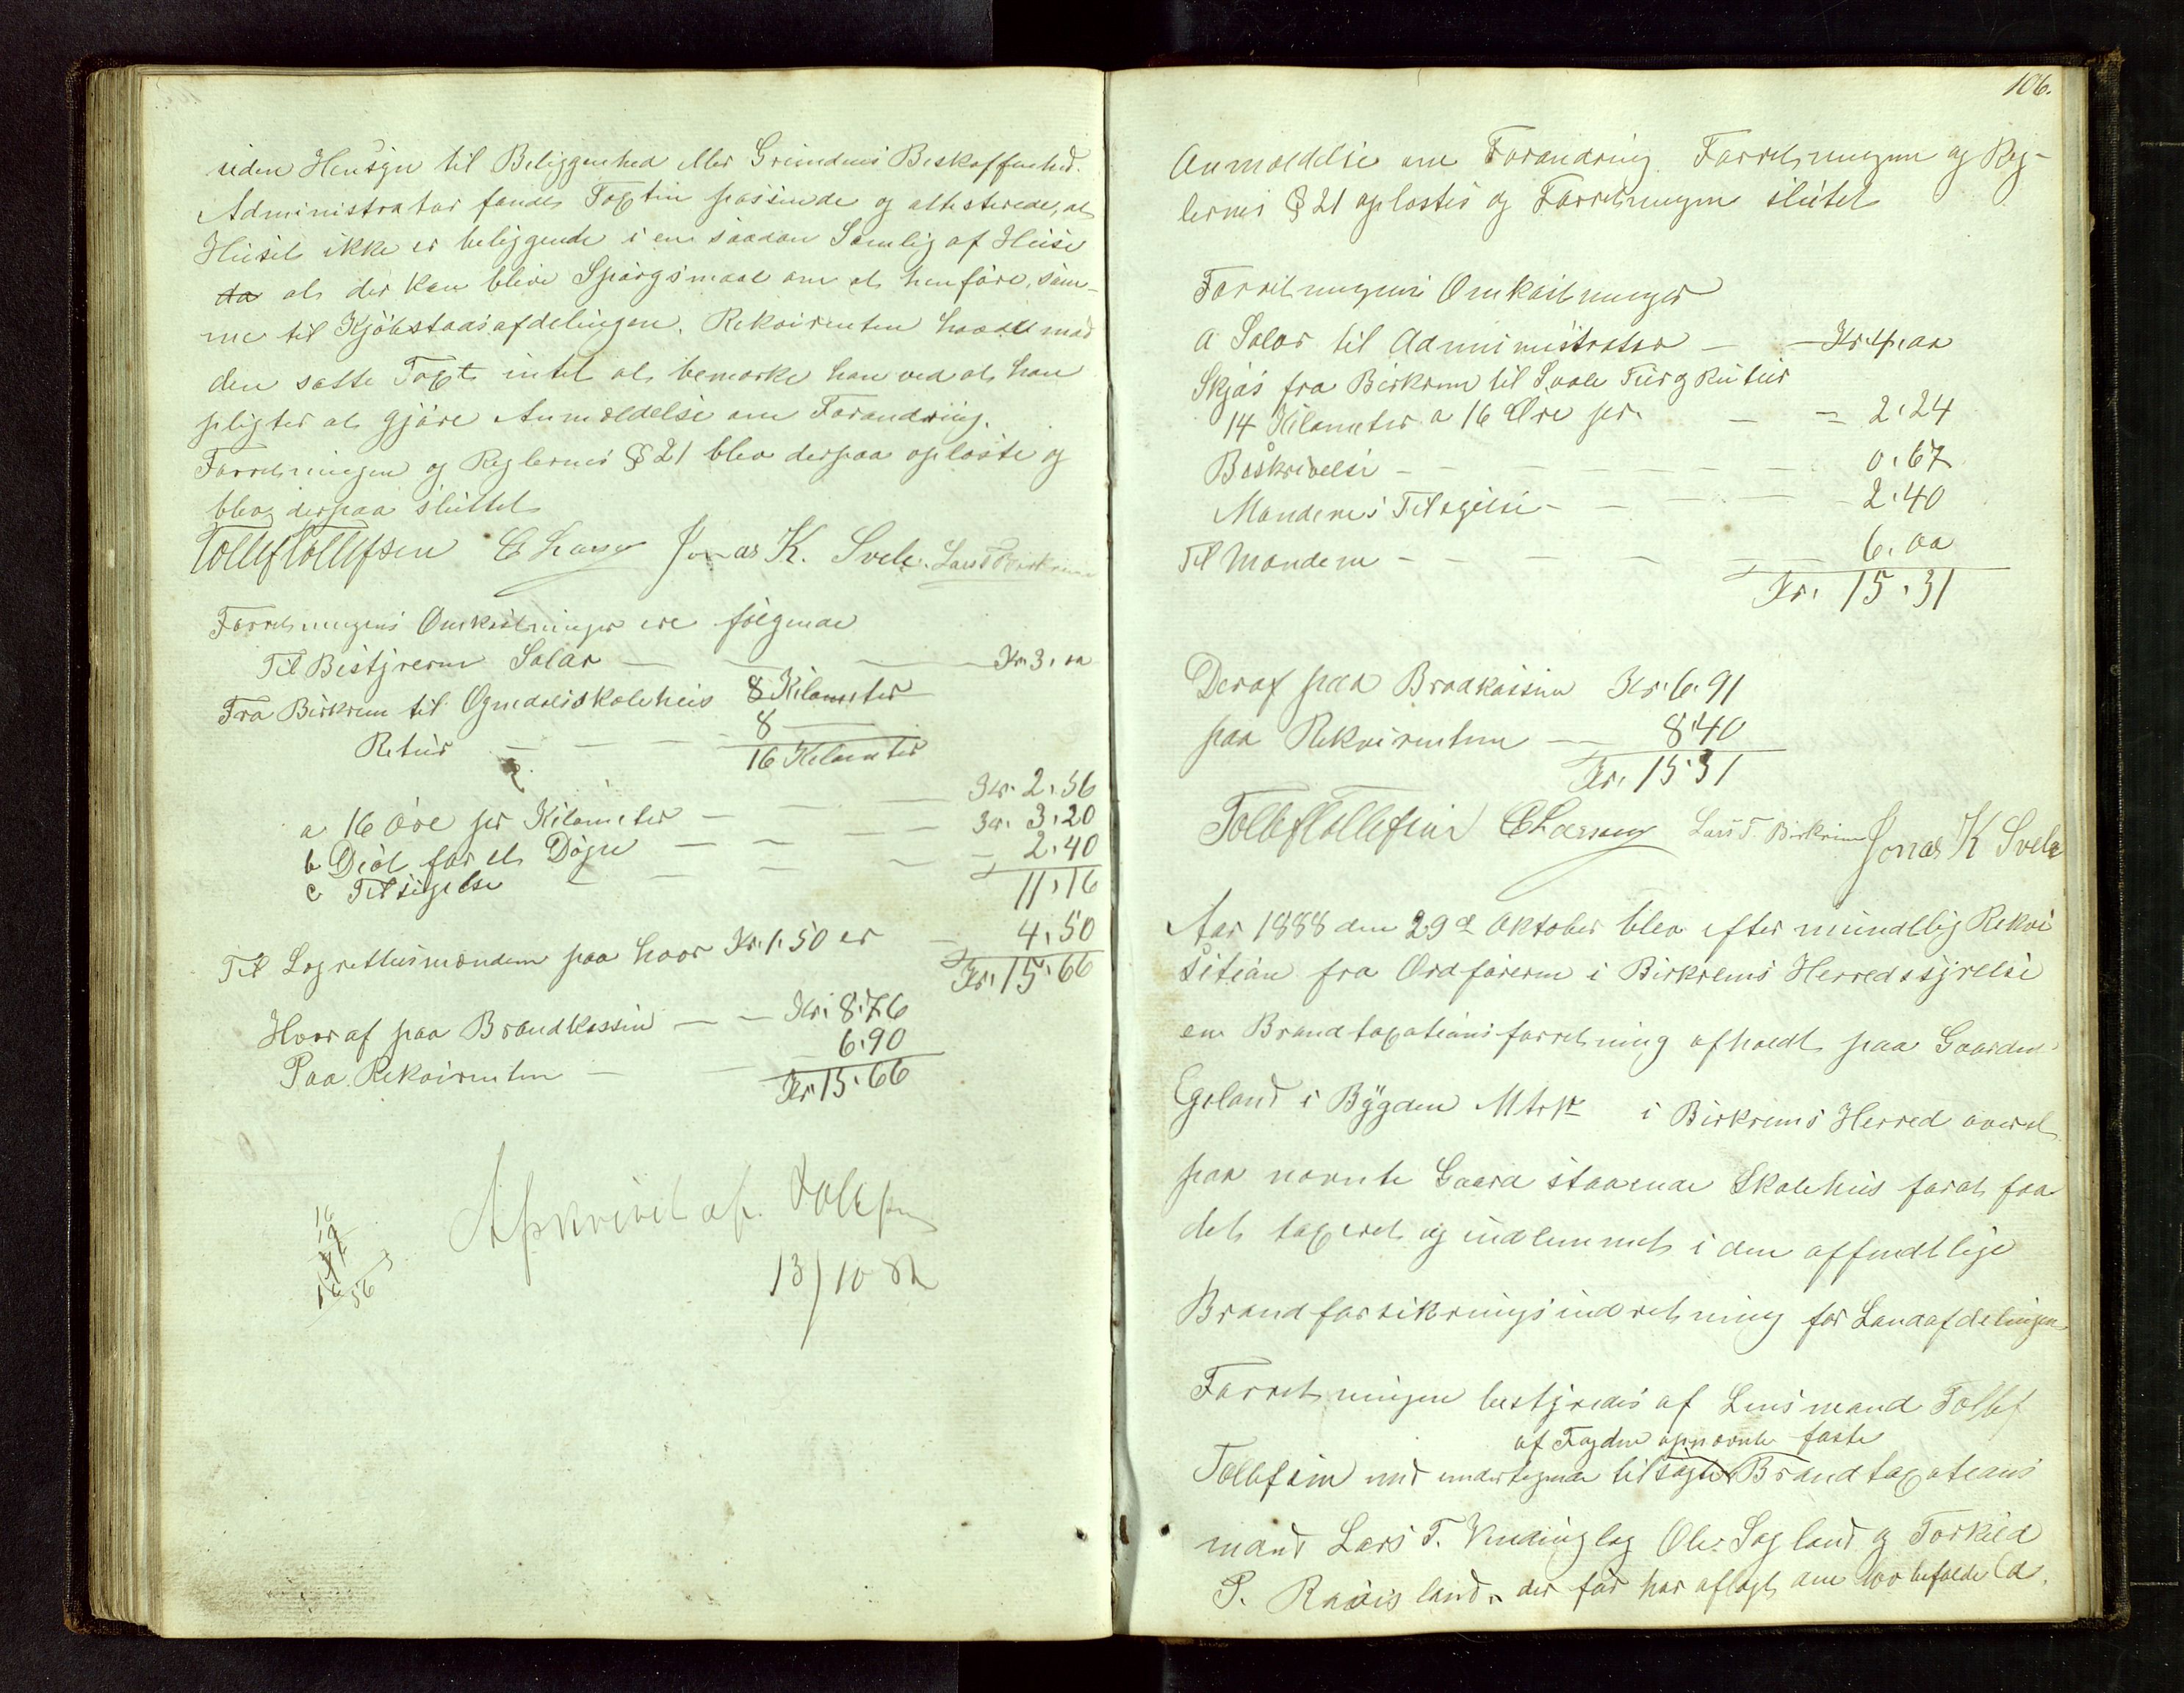 siden Hensyn til Beliggenhed eller Grundens Beskaffenhed.
Administrator fandt Taxten passende og attesterede, at
Huset ikke er beliggende i en saadan Samlig af Huse
da at der kan blive Spørgsmaal om at henføre, sam-
me til Kjøbstadsafdelingen. Rekvirenten havde mod
den satte Taxt intet at bemærke han ved at han
pligter at gjøre Anmeldelse om Forandring.
Forretningen og Reglernes § 21 blev derpaa oplæste og
blev derpaa sluttet
Tollef Tollefsen Jonas K. Svele. Lars T Birkrem
Forretningens Omkostninger ere følgende
Til Bestyreren Salær — — — Kr. 3.00
Fra Birkrem til Ognedalsskolehus 8 Kilometer
Retur — — — 8
16 Kilometer
a 16 Øre per Kilometer — — — Kr. 2.56
b Diæt for et Døgn — — — Kr. 3.20
c Tilsigelse — — — 2.40
11.16
Til Lagrettesmændene paa hver Kr. 1.50 er — 4.50
Kr. 15.66
Hvoraf paa Brandkassen — — Kr. 8.76
Paa Rekvirenten — — 6.90
Kr. 15.66
Afskrivet af. Tollefsen
13/10 88
16
16
56
106.
Anmeldelse om Forandring Forretningen og Reg-
lernes § 21 oplæstes og Forretningen sluttet
Forretningens Omkostninger
a Salær til Administrator — — Kr. 4.00
Skjds fra Birkrem til Svele Tur og Retur
14 Kilometer a 16 Øre per. — — 2.24
Beskrivelse — — — — 0.67
Mændenes Tilsigelse — — — 2.40
Til Mændene — — — — 6.00
Kr. 15.31
Deraf paa Brandkassen Kr. 6.91
paa Rekvirenten — 8.40
Kr. 15.31
Tollef Tollefsen Lars T. Birkrem Jonas K Svele
Aar 1888 den 29de Oktober blev efter mundtlig Rekvi
sition fra Ordføreren i Birkrems Herredsstyrelse
en Brandtaxationsforretning afholdt paa Gaarden
Egeland i Bygden Mtrk i Birkrems Herred over et
paa nævnte Gaard staaende Skolehus for at faa
det taxeret og indlemmet i den offentlige
Brandforsikringsindretning for Landafdelingen
Forretningen bestyredes af Lensmand Tollef
af Fogden opnævnte faste
Tollefsen med undertegnede tilsagte Brandtaxations
mænd Lars T. Ole Sagland og Torkild
P. Ravisland, der før har aflagt den anbefalede Ed.